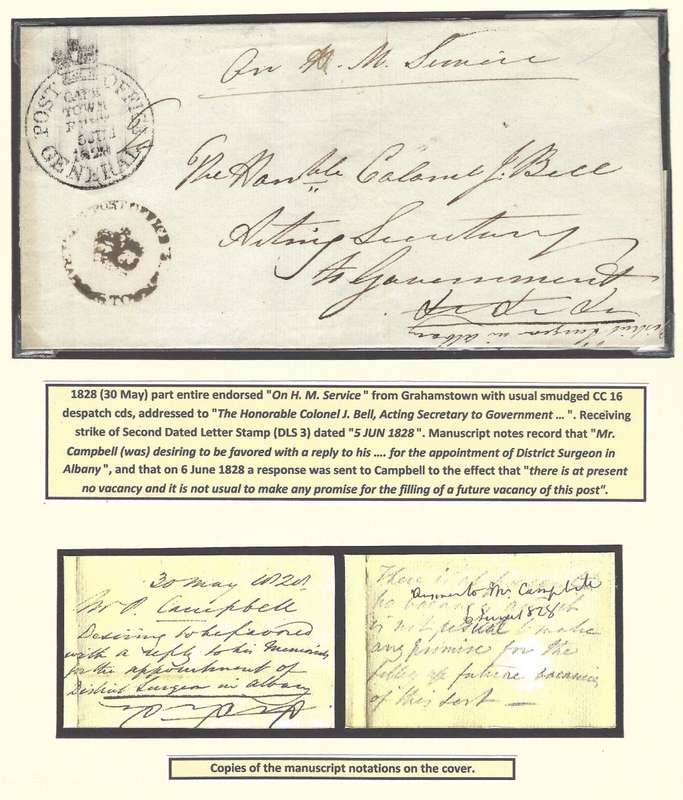 On H. M. Service
POST OFFICE
CAPE
TOWN
5 JUN
1828
GENERAL
The Honble Colonel J. Bell
Acting Secretary
to Government
POST OFFICE
District Surgeon in Albany
1828 (30 May) part entire endorsed "On H. M. Service" from Grahamstown with usual smudged CC 16
despatch cds, addressed to "The Honorable Colonel J. Bell, Acting Secretary to Government ... ". Receiving
strike of Second Dated Letter Stamp (DLS 3) dated "5 JUN 1828". Manuscript notes record that "Mr.
Campbell (was) desiring to be favored with a reply to his .... for the appointment of District Surgeon in
Albany", and that on 6 June 1828 a response was sent to Campbell to the effect that "there is at present
no vacancy and it is not usual to make any promise for the filling of a future vacancy of this post".
30 May 1828.
Mr P. Campbell
Desiring to be favored
with a reply to his Memorial
for the appointment of
District Surgeon in Albany
There is at
Answer to Mr. Campbell
no
6 June 1828
is not usual to make
any promise for the
filling up future vacancies
of this sort —
Copies of the manuscript notations on the cover.